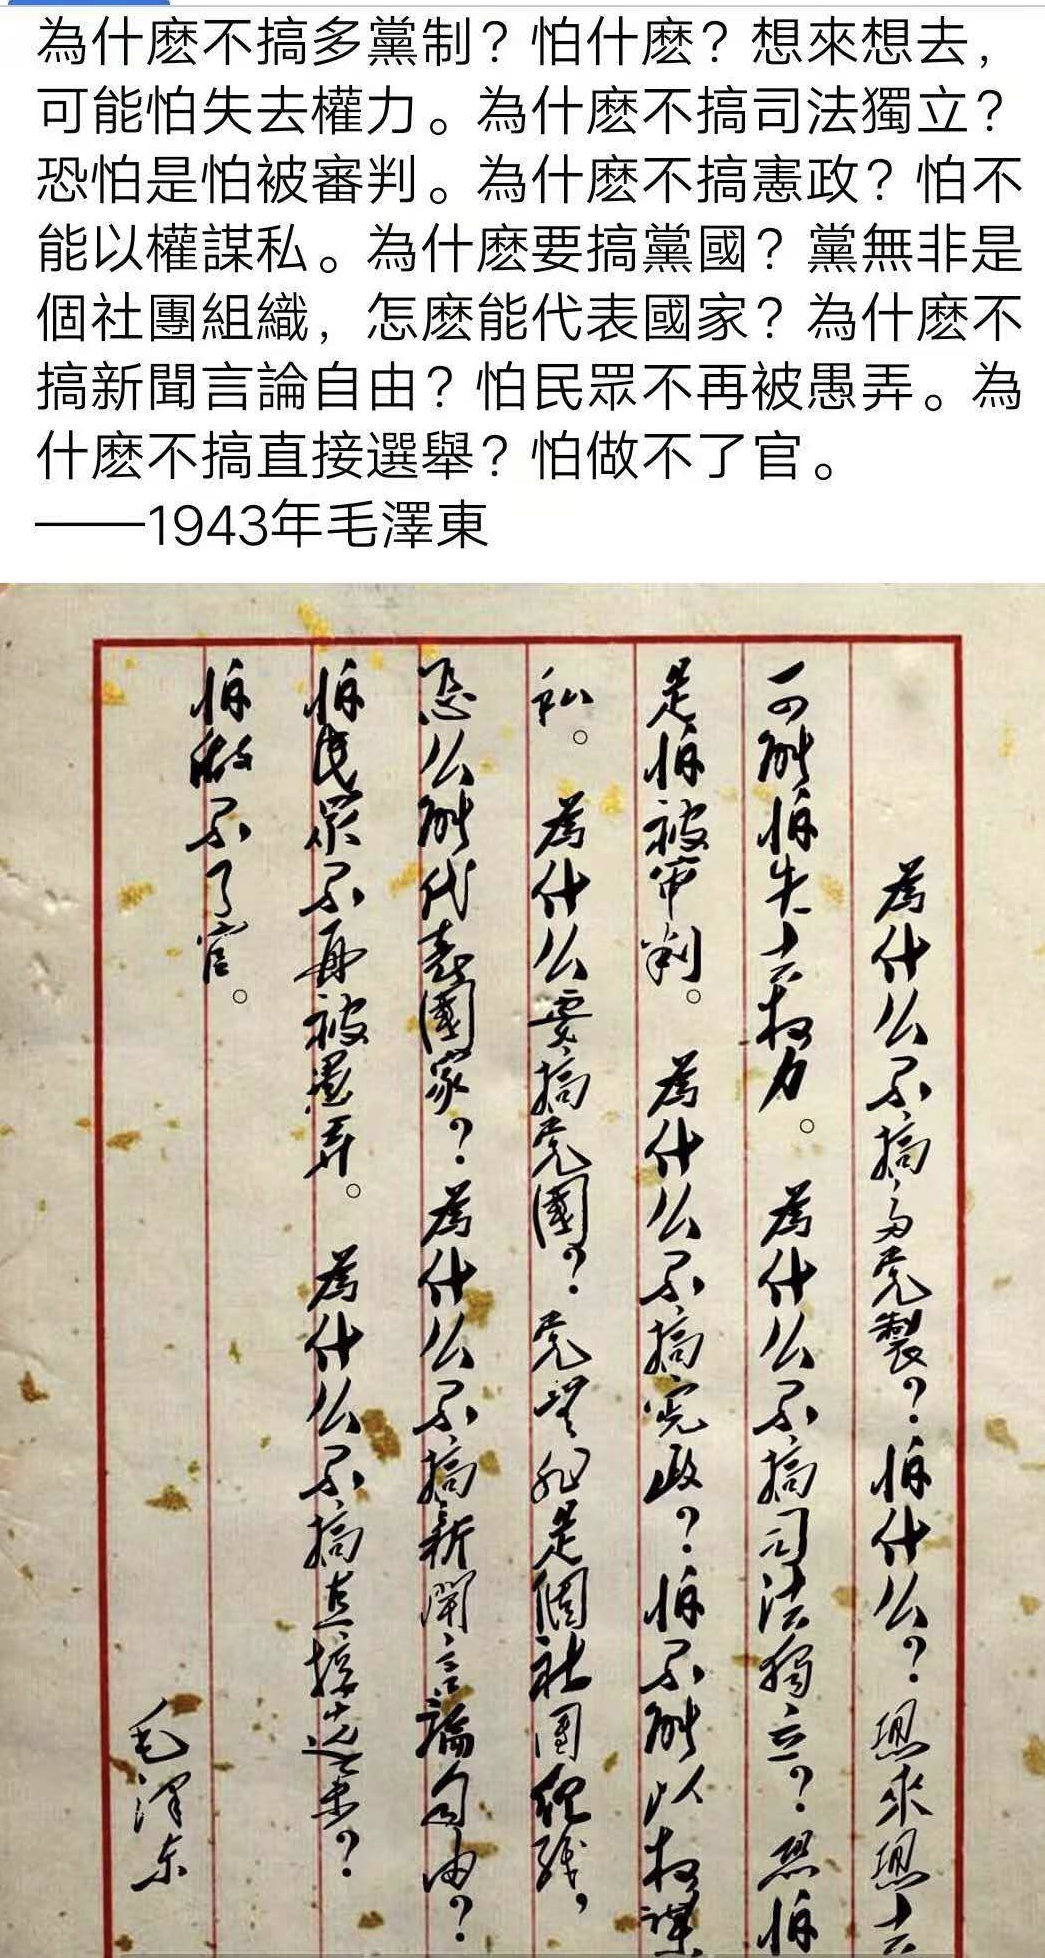 為什麽不搞多黨制？怕什麽？想來想去，
可能怕失去權力。為什麽不搞司法獨立？
恐怕是怕被審判。為什麽不搞憲政？怕不
能以權謀私。為什麽要搞黨國？黨無非是
個社團組織，怎麽能代表國家？為什麽不
搞新聞言論自由？怕民眾不再被愚弄。為
什麽不搞直接選舉？怕做不了官。
——1943年毛澤東
為什么不搞多党製？怕什么？想來想去
可能怕失去权力。為什么不搞司法獨立？恐怕
是怕被审判。為什么不搞宪政？怕不能以权謀
私。為什么要搞党國？党无非是個社团組織，
怎么能代表國家？為什么不搞新聞言論自由？
怕民众不再被愚弄。為什么不搞直接选举？
怕做不了官。
毛澤东